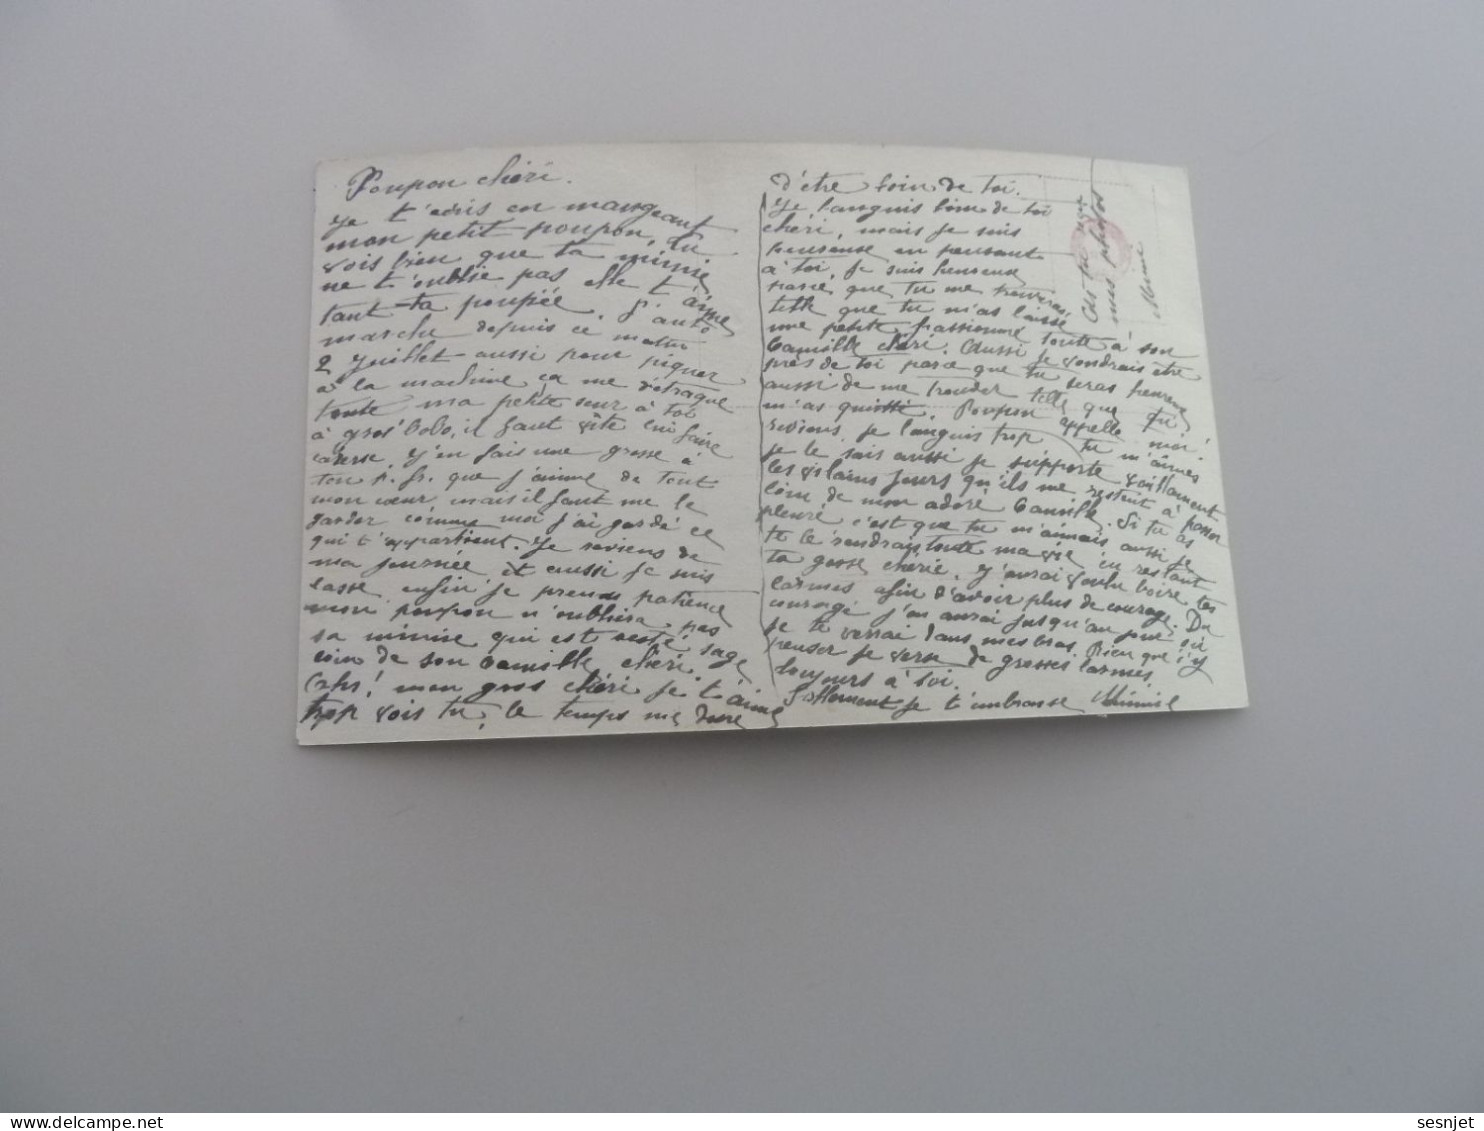 Poupon chéri.
Je t'écris en mangeant
mon petit poupon, tu
vois bien que ta mimie
ne t'oublie pas elle t'aime
tant ta poupée. J'
marche depuis ce matin
2 Juillet aussi pour piquer
à la machine ça me détraque
toute ma petite sœur à toi
à gros bobo, il faut vite lui faire
caresse. J'en fais une grosse à
ton p. fr. que j'aime de tout
mon cœur mais il faut me le
garder comme moi j'ai gardé ce
qui t'appartient. Je reviens de
ma journée et aussi je suis
lasse enfin je prends patience
mon poupon n'oubliera pas
sa mimie qui est resté sage
loin de son Camille chéri.
mon gros chéri je t'aime
trop vois tu, le temps me dure
d'être loin de toi.
Je languis loin de toi
chéri, mais je suis
heureuse en pensant
à toi. Je suis heureuse
parce que tu me trouveras
telle que tu m'as laissé
une petite passionné toute à son
Camille chéri. Aussi je voudrais être
près de toi parce que tu seras heureux
aussi de me trouver telle que tu
m'as quitté. Poupon appelle moi!
reviens, je languis trop tu m'aimes
je le sais aussi je supporte vaillamment
les vilains jours qu'ils me restent à passer
loin de mon adoré Camille. Si tu as
pleuré c'est que tu m'aimais aussi je
te le rendrais toute ma vie en restant
ta gosse chérie. J'aurai voulu boire tes
larmes afin d'avoir plus de courage. Du
courage j'en aurai jusqu'au jour où
je te verrai dans mes bras. Rien que d'y
penser je verse de grosses larmes.
toujours à toi.
Follement je t'embrasse Mimie
As tu reçu
mes photos
Mimie
sesnjet